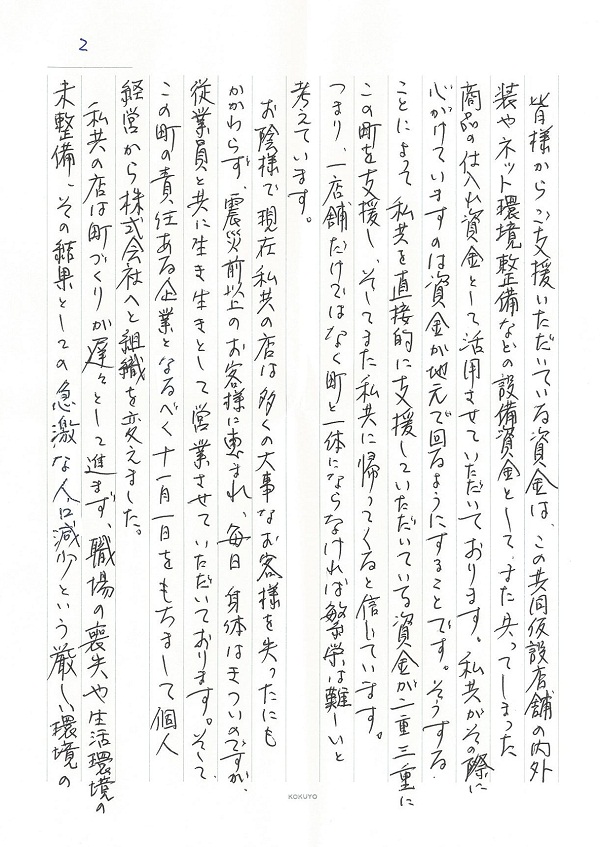 2
皆様からご支援いただいている資金は、この共同仮設店舗の内外
装やネット環境整備などの設備資金として、また失ってしまった
商品の仕入れ資金として活用させていただいております。私共がその際に
心がけていますのは資金が地元で回るようにすることです。そうする
ことによって私共を直接的に支援していただいている資金が二重三重に
この町を支援し、そしてまた私共に帰ってくると信じています。
つまり、一店舗だけではなく町と一体にならなければ繁栄は難しいと
考えています。
お陰様で現在私共の店は多くの大事なお客様を失ったにも
かかわらず、震災前以上のお客様に恵まれ、毎日身体はきついのですが、
従業員と共に生き生きとして営業させていただいております。そして、
この町の責任ある企業となるべく十一月一日をもちまして個人
経営から株式会社へと組織を変えました。
私共の店は町づくりが遅々として進まず、職場の喪失や生活環境の
未整備、その結果としての急激な人口減少という厳しい環境の
KOKUYO